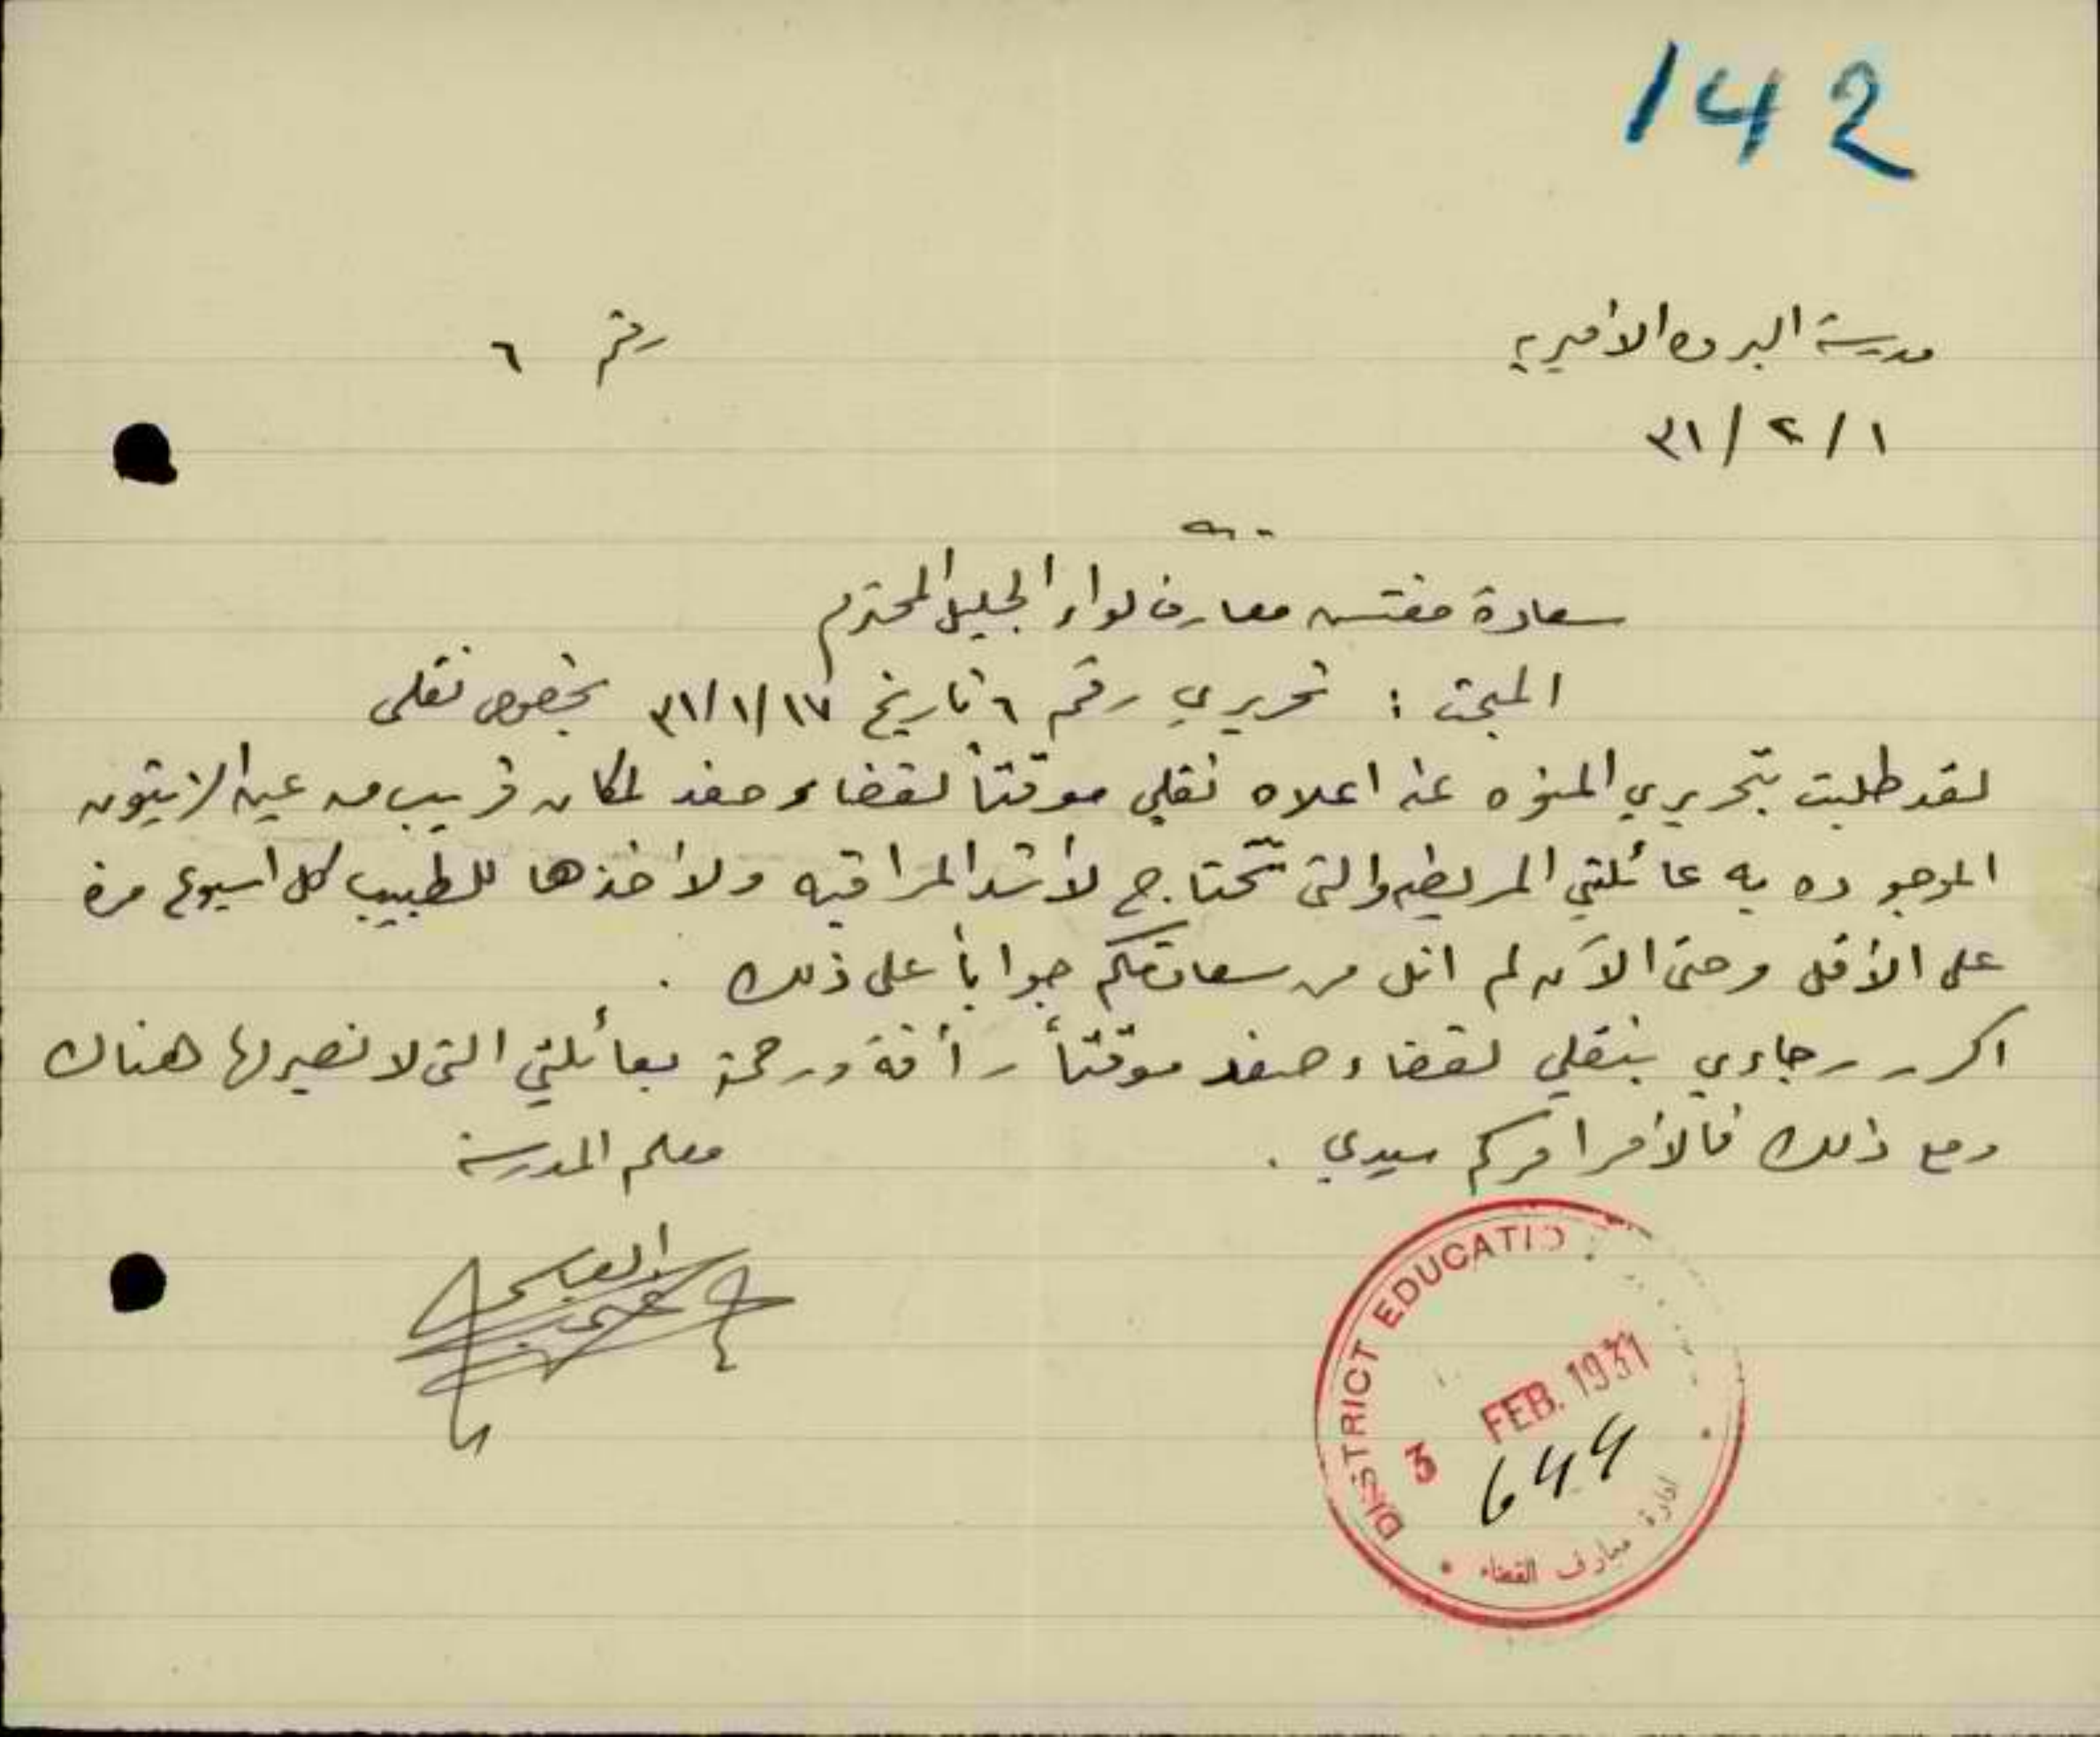 142
مدرسة البروه الأميرية رقم ٦
٣١/٢/١
سعادة مفتش معارف لواء الجليل المحترم
المبحث : تحريري رقم ٦ تاريخ ٣١/١/١٧ بخصوص نقلي
لقد طلبت بتحريري المنوه عنه اعلاه نقلي موقتاً لقضاء صفد لمكان قريب من عين الزيتون
الموجوده به عائلتي المريضه والتي تحتاج لأشد المراقبه ولأخذها للطبيب كل اسبوع مرة
على الأقل وحتى الآن لم انل من سعادتكم جواباً على ذلك .
اكرر رجاءي بنقلي لقضاء صفد موقتاً رأفة ورحمة بعائلتي التي لا نصير لها هناك
ومع ذلك فالأمر امركم سيدي . معلم المدرسة
DISTRICT EDUCATIO
3 FEB. 1931
644
ادارة معارف القضاء